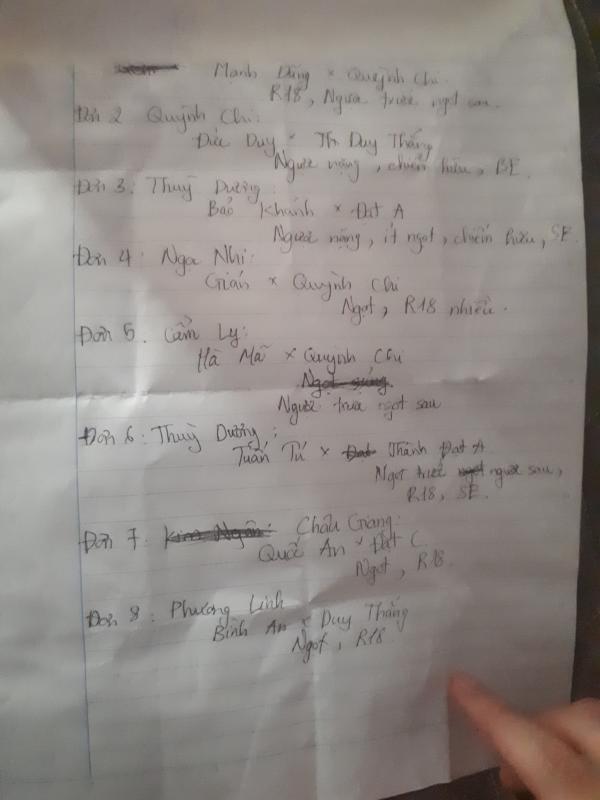 Mạnh Dũng × Quỳnh Chi.
R18, Ngược trước ngọt sau.
Đơn 2 Quỳnh Chi:
Đức Duy × Th Duy Thắng
Ngược nặng, chiến hữu, BE.
Đơn 3: Thuỳ Dương:
Bảo Khánh × Đạt A
Ngược nặng, ít ngọt, chiến hữu, SE.
Đơn 4: Nga Nhi:
Gián × Quỳnh Chi
Ngọt, R18 nhiều.
Đơn 5. Cẩm Ly:
Hà Mã × Quỳnh Chi
Ngược trước ngọt sau
Đơn 6: Thuỳ Dương:
Tuấn Tú × Thành Đạt A
Ngọt trước ngược sau,
R18, SE.
Đơn 7: Châu Giang:
Quốc An × Đạt C.
Ngọt, R18.
Đơn 8: Phương Linh
Bình An × Duy Thắng
Ngọt, R18.